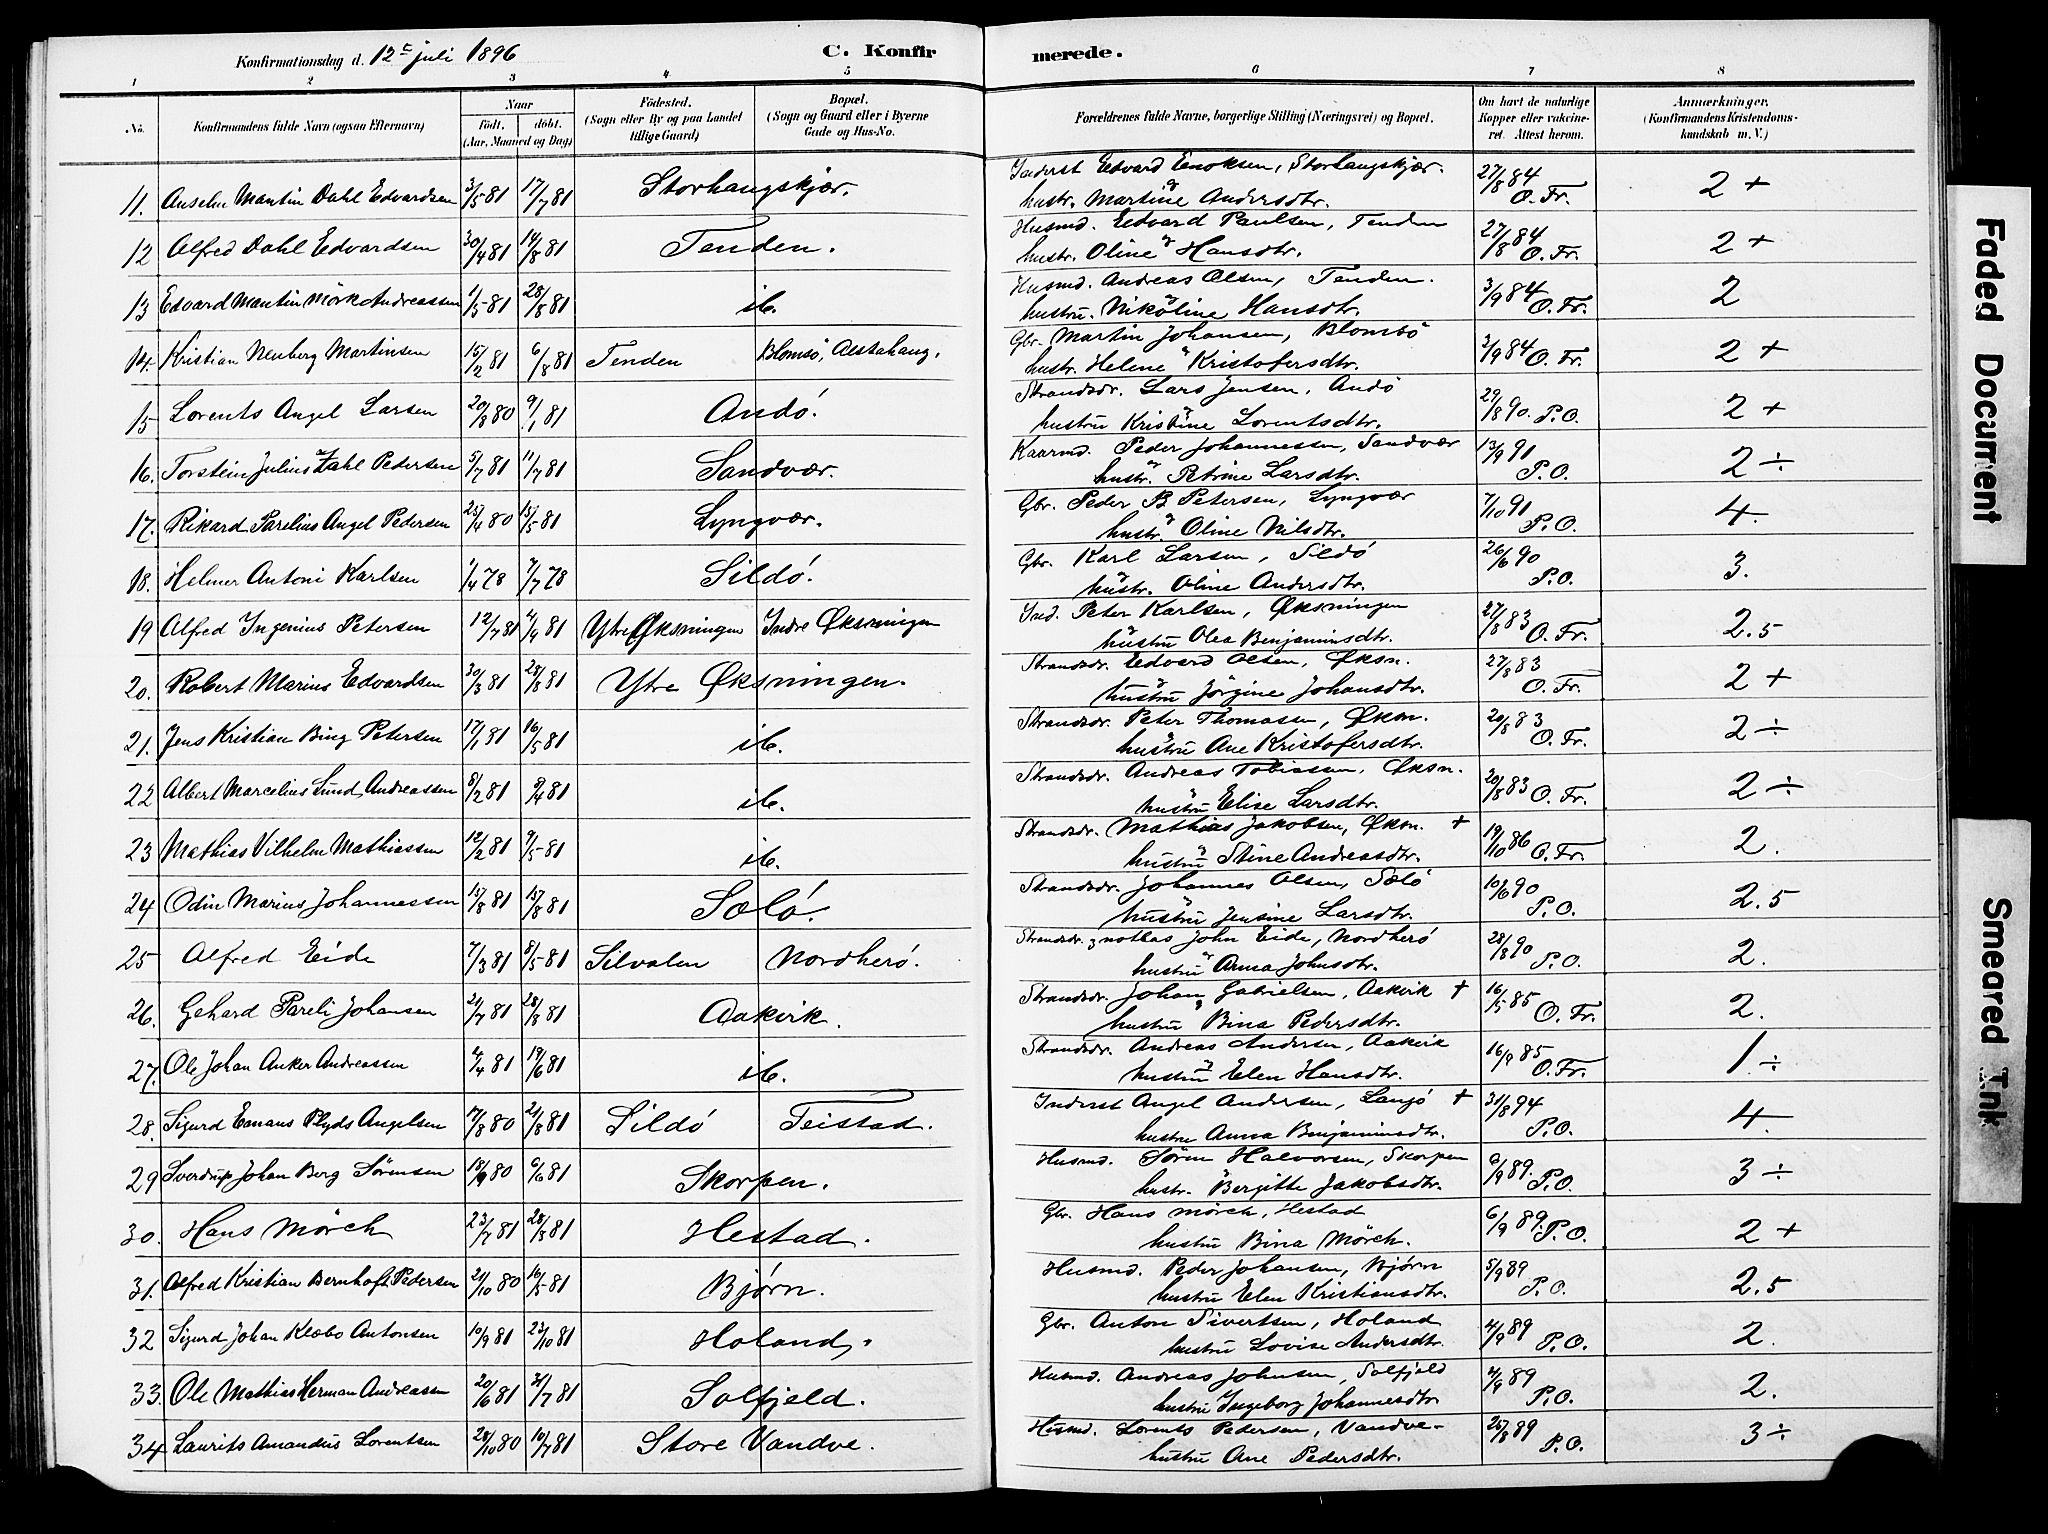 Konfirmationsdag d. 12te juli 1896 C. Konfirmerede.
1 2 3 4 5 6 7 8
No. Konfirmandens fulde Navn (ogsaa Efternavn) Naar Födt. döbt. (Aar, Maaned og Dag) Födested. (Sogn eller By og paa Landet tillige Gaard) Bopæl. (Sogn og Gaard eller i Byerne Gade og Hus-No. Forældrenes fulde Navne, borgerlige Stilling (Næringsvei) og Bopæl. Om havt de naturlige Kopper eller vakcineret. Attest herom. Anmærkninger. (Konfirmandens Kristendomskundskab m. V.)
11. Anselm Martin Dahl Edvardsen 3/5 81 17/7 81 Storhaugskjær. Inderst Edvard Enoksen, Storhaugskjær. 27/8 84 O. Fr. 2 +
hustr. Martine Andersdtr.
12 Alfred Dahl Edvardsen 30/4 81 14/8 81 Tenden. Husmd. Edvard Paulsen, Tenden 27/8 84 O. Fr. 2 +
hustr. Oline Hansdtr.
13 Edvard Martin Mörk Andreassen 1/5 81 28/8 81 ib. Husmd. Andreas Olsen, Tenden. 3/9 84 O. Fr. 2
hustru. Nikoline Hansdtr.
14. Kristian Neuberg Martinsen 15/2 81 6/8 81 Tenden Blomsö, Alstahaug. Gbr. Martin Johansen, Blomsö 3/9 84 O. Fr. 2 +
hustr. Helene Kristofersdtr.
15 Lorents Angel Larsen 20/8 80 9/1 81 Andö. Strandsdr. Lars Jensen, Andö 29/8 90. P. O. 2 +
hustru Kristine Lorentsdtr.
16. Torstein Julius Zahl Pedersen 5/7 81 11/7 81 Sandvær. Kaarmd. Peder Johannessen, Sandvær 13/9 91 P. O. 2 ÷
hustr. Petrine Larsdtr.
17. Rikard Parelius Angel Pedersen 25/4 80 15/5 81 Lyngvær. Gbr. Peder B Petersen, Lyngvær 7/10 91 P. O. 4.
hustr. Oline Nilsdtr.
18. Helmer Antoni Karlsen 1/4 78 7/7 78 Sildö. Gbr. Karl Larsen, Sildö 26/6 90 P. O. 3.
hustr. Oline Andersdtr.
19 Alfred Ingenius Petersen 12/7 81 4/9 81 Ytre Øksningen Indre Øksningen Ind. Peter Karlsen, Øksningen 27/8 83 O. Fr. 2.5
hustru Olea Benjaminsdtr.
20. Robert Marius Edvardsen 30/3 81 28/8 81 Ytre Øksningen. Strandsdr. Edvard Olsen, Øksn. 27/8 83 O. Fr. 2 +
hustru Jörgine Johansdtr.
21. Jens Kristian Bing Petersen 17/1 81 16/5 81 ib. Strandsdr. Peter Thomassen, Øksn. 20/8 83 O. Fr. 2 ÷
hustru Ane Kristofersdtr.
22 Albert Marcelius Lund Andreassen 8/2 81 9/4 81 ib. Strandsdr. Andreas Tobiassen, Øksn. 20/8 83 O. Fr. 2 ÷
hustru Elise Larsdtr.
23 Mathias Vilhelm Mathiassen 12/2 81 9/5 81 ib. Strandsdr. Mathias Jakobsen, Øksn. + 19/10 86 O. Fr. 2.
hustru Stine Andreasdtr.
24 Odin Marius Johannessen 15/8 81 Solö. Strandsdr. Johannes Olsen, Solö 10/6 90 P. O. 2.5
hustru Jensine Larsdtr.
25 Alfred Eide 7/3 81 8/5 81 Silvalen Nordherö. Strandsdr. & notbas John Eide, Nordherö 28/8 90 P. O. 2.
hustru Anna Johnsdtr.
26. Gehard Pareli Johansen 21/7 81 28/8 81 Aakvik. Strandsdr. Johan Gabrielsen, Aakvik + 16/5 85 O. Fr. 2.
hustru Bina Pedersdtr.
27. Ole Johan Anker Andreassen 4/4 81 19/6 81 ib. Strandsdr. Andreas Andersen, Aakvik 16/9 85 O. Fr. 1 ÷
hustru Elen Hansdtr.
28. Sigurd Emaus Plyds Angelsen 17/8 80 21/8 81 Sildö Teistad. Inderst Angel Andersen, Langö + 31/8 94 P. O. 4.
hustru Anna Benjaminsdtr.
29 Sverdrup Johan Berg Sörensen 18/9 80 6/6 81 Skorpen. Husmd. Sören Halvorsen, Skorpen 6/9 89. P. O. 3 ÷
hustr. Bergitte Jakobsdtr.
30. Hans Mörch 23/7 81 28/8 81 Hestad. Gbr. Hans Mörch, Hestad 6/9 89. P. O. 2 +
hustru Bina Mörch.
31. Alfred Kristian Bernhoft Pedersen 21/10 80 16/5 81 Bjørn. Husmd. Peder Johansen, Bjørn 5/9 89 P. O. 2.5
hustru Elen Kristiansdtr.
32 Sigurd Johan Klæbo Antonsen 10/9 81 23/10 81 Holand. Gbr. Anton Sivertsen, Holand 4/9 89 P. O. 2.
hustru Lovise Andersdtr.
33. Ole Mathias Herman Andreassen 20/6 81 31/7 81 Solfjeld. Husmd. Andreas Johnsen, Solfjeld 4/9 89 P. O. 2.
hustru Ingeborg Johannesdtr
34 Laurits Amandus Lorentsen 28/10 80 10/7 81 Store Vandve. Husmd. Lorents Pedersen, Vandve- 25/8 89 P. O. 3 ÷
hustru Ane Pedersdtr.
Faded Document
Smeared Ink